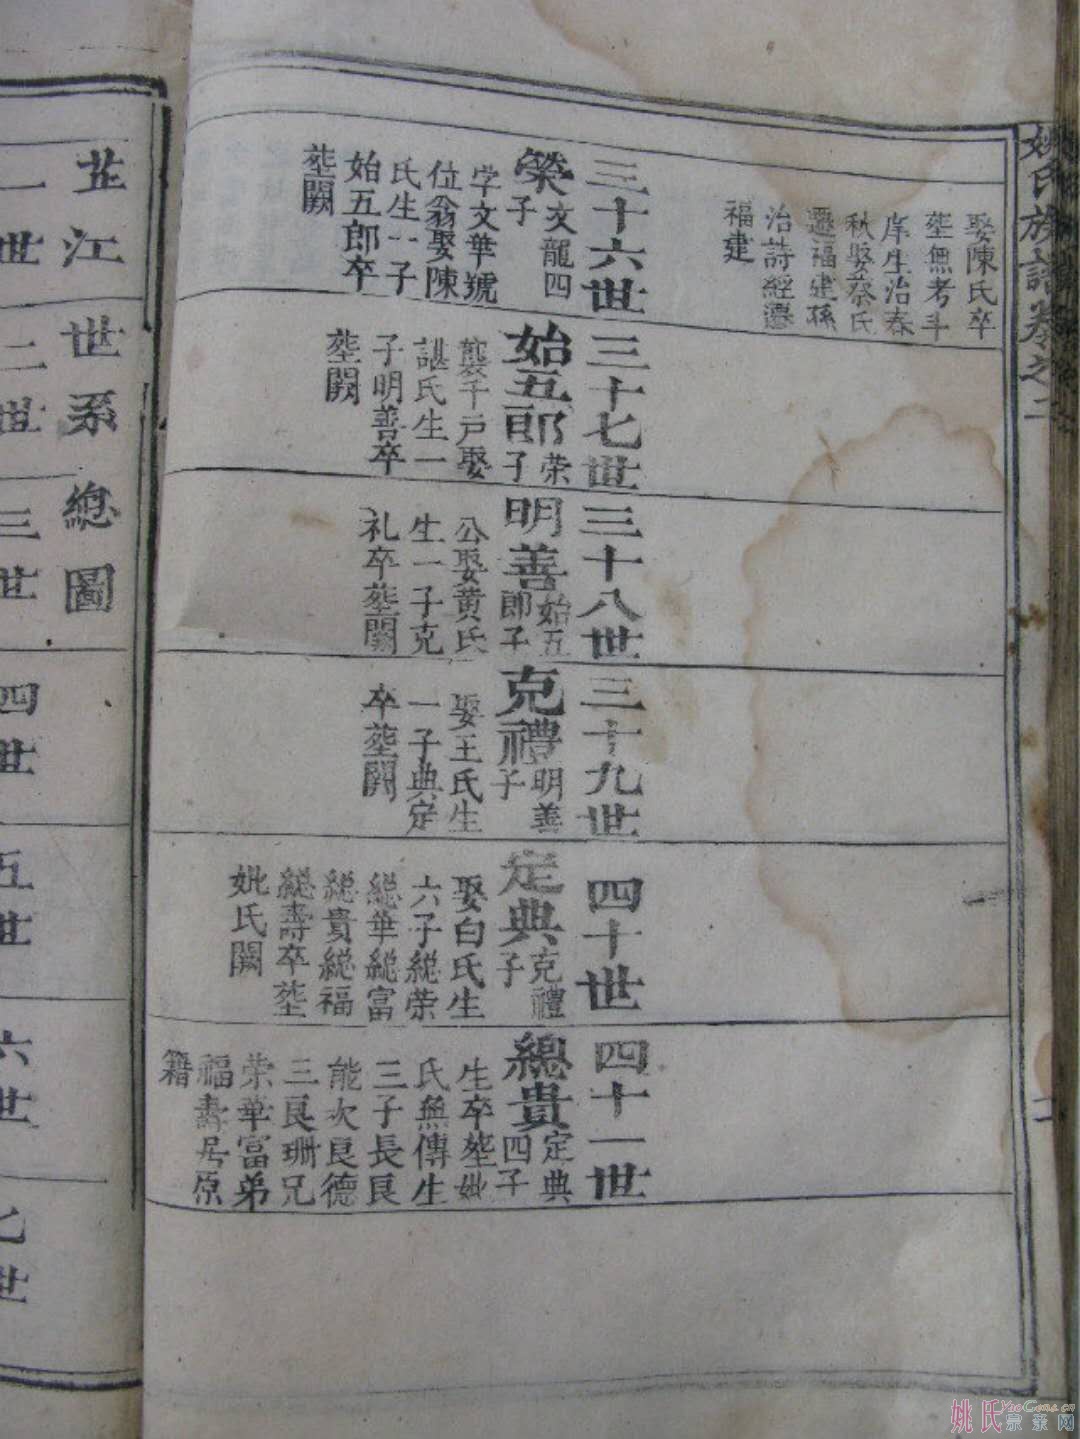 姚氏族譜卷之二
娶陳氏卒
塟無考斗
庠生治春
秋娶蔡氏
遷福建孫
治詩經遷
福建
三十六世
榮
文龍四
子
字文華號
位翁娶陳
氏生一子
始五郎卒
塟闕
三十七世
始五郎
荣
子
襲千户娶
諶氏生一
子明善卒
塟闕
三十八世
明善
始五
郎子
公娶黄氏
生一子克
礼卒塟闕
三十九世
克禮
明善
子
娶王氏生
一子典定
卒塟闕
四十世
定典
克禮
子
娶白氏生
六子総荣
総華総富
総貴総福
総壽卒塟
妣氏闕
四十一世
總貴
定典
四子
生卒塟妣
氏無傳生
三子長良
能次良德
三良珊兄
荣華富弟
福壽居原
籍
芷江世系總圖
一世
二世
三世
四世
五世
六世
七世
姚氏宗亲网
YaoGens.cn